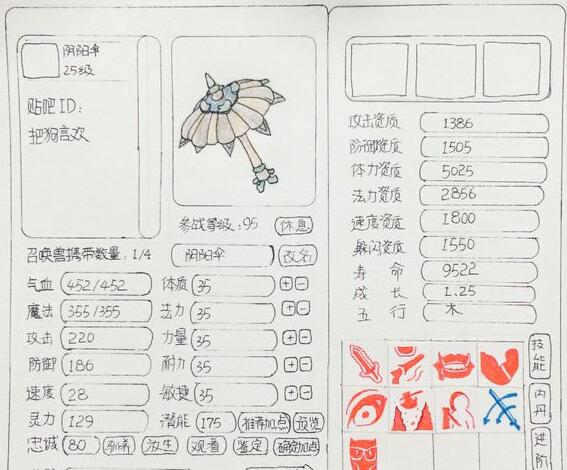 阴阳伞
25级
贴吧ID:
把狗言欢
参战等级:95 休息
召唤兽携带数量:1/4 阴阳伞 改名
气血 452/452 体质 35 + -
魔法 355/355 法力 35 + -
攻击 220 力量 35 + -
防御 186 耐力 35 + -
速度 28 敏捷 35 + -
灵力 129 潜能 175 推荐加点 预览
忠诚 80 驯养 放生 观看 鉴定 确定加点
攻击资质 1386
防御资质 1505
体力资质 5025
法力资质 2856
速度资质 1800
躲闪资质 1550
寿命 9522
成长 1.25
五行 木
技能
内丹
进阶